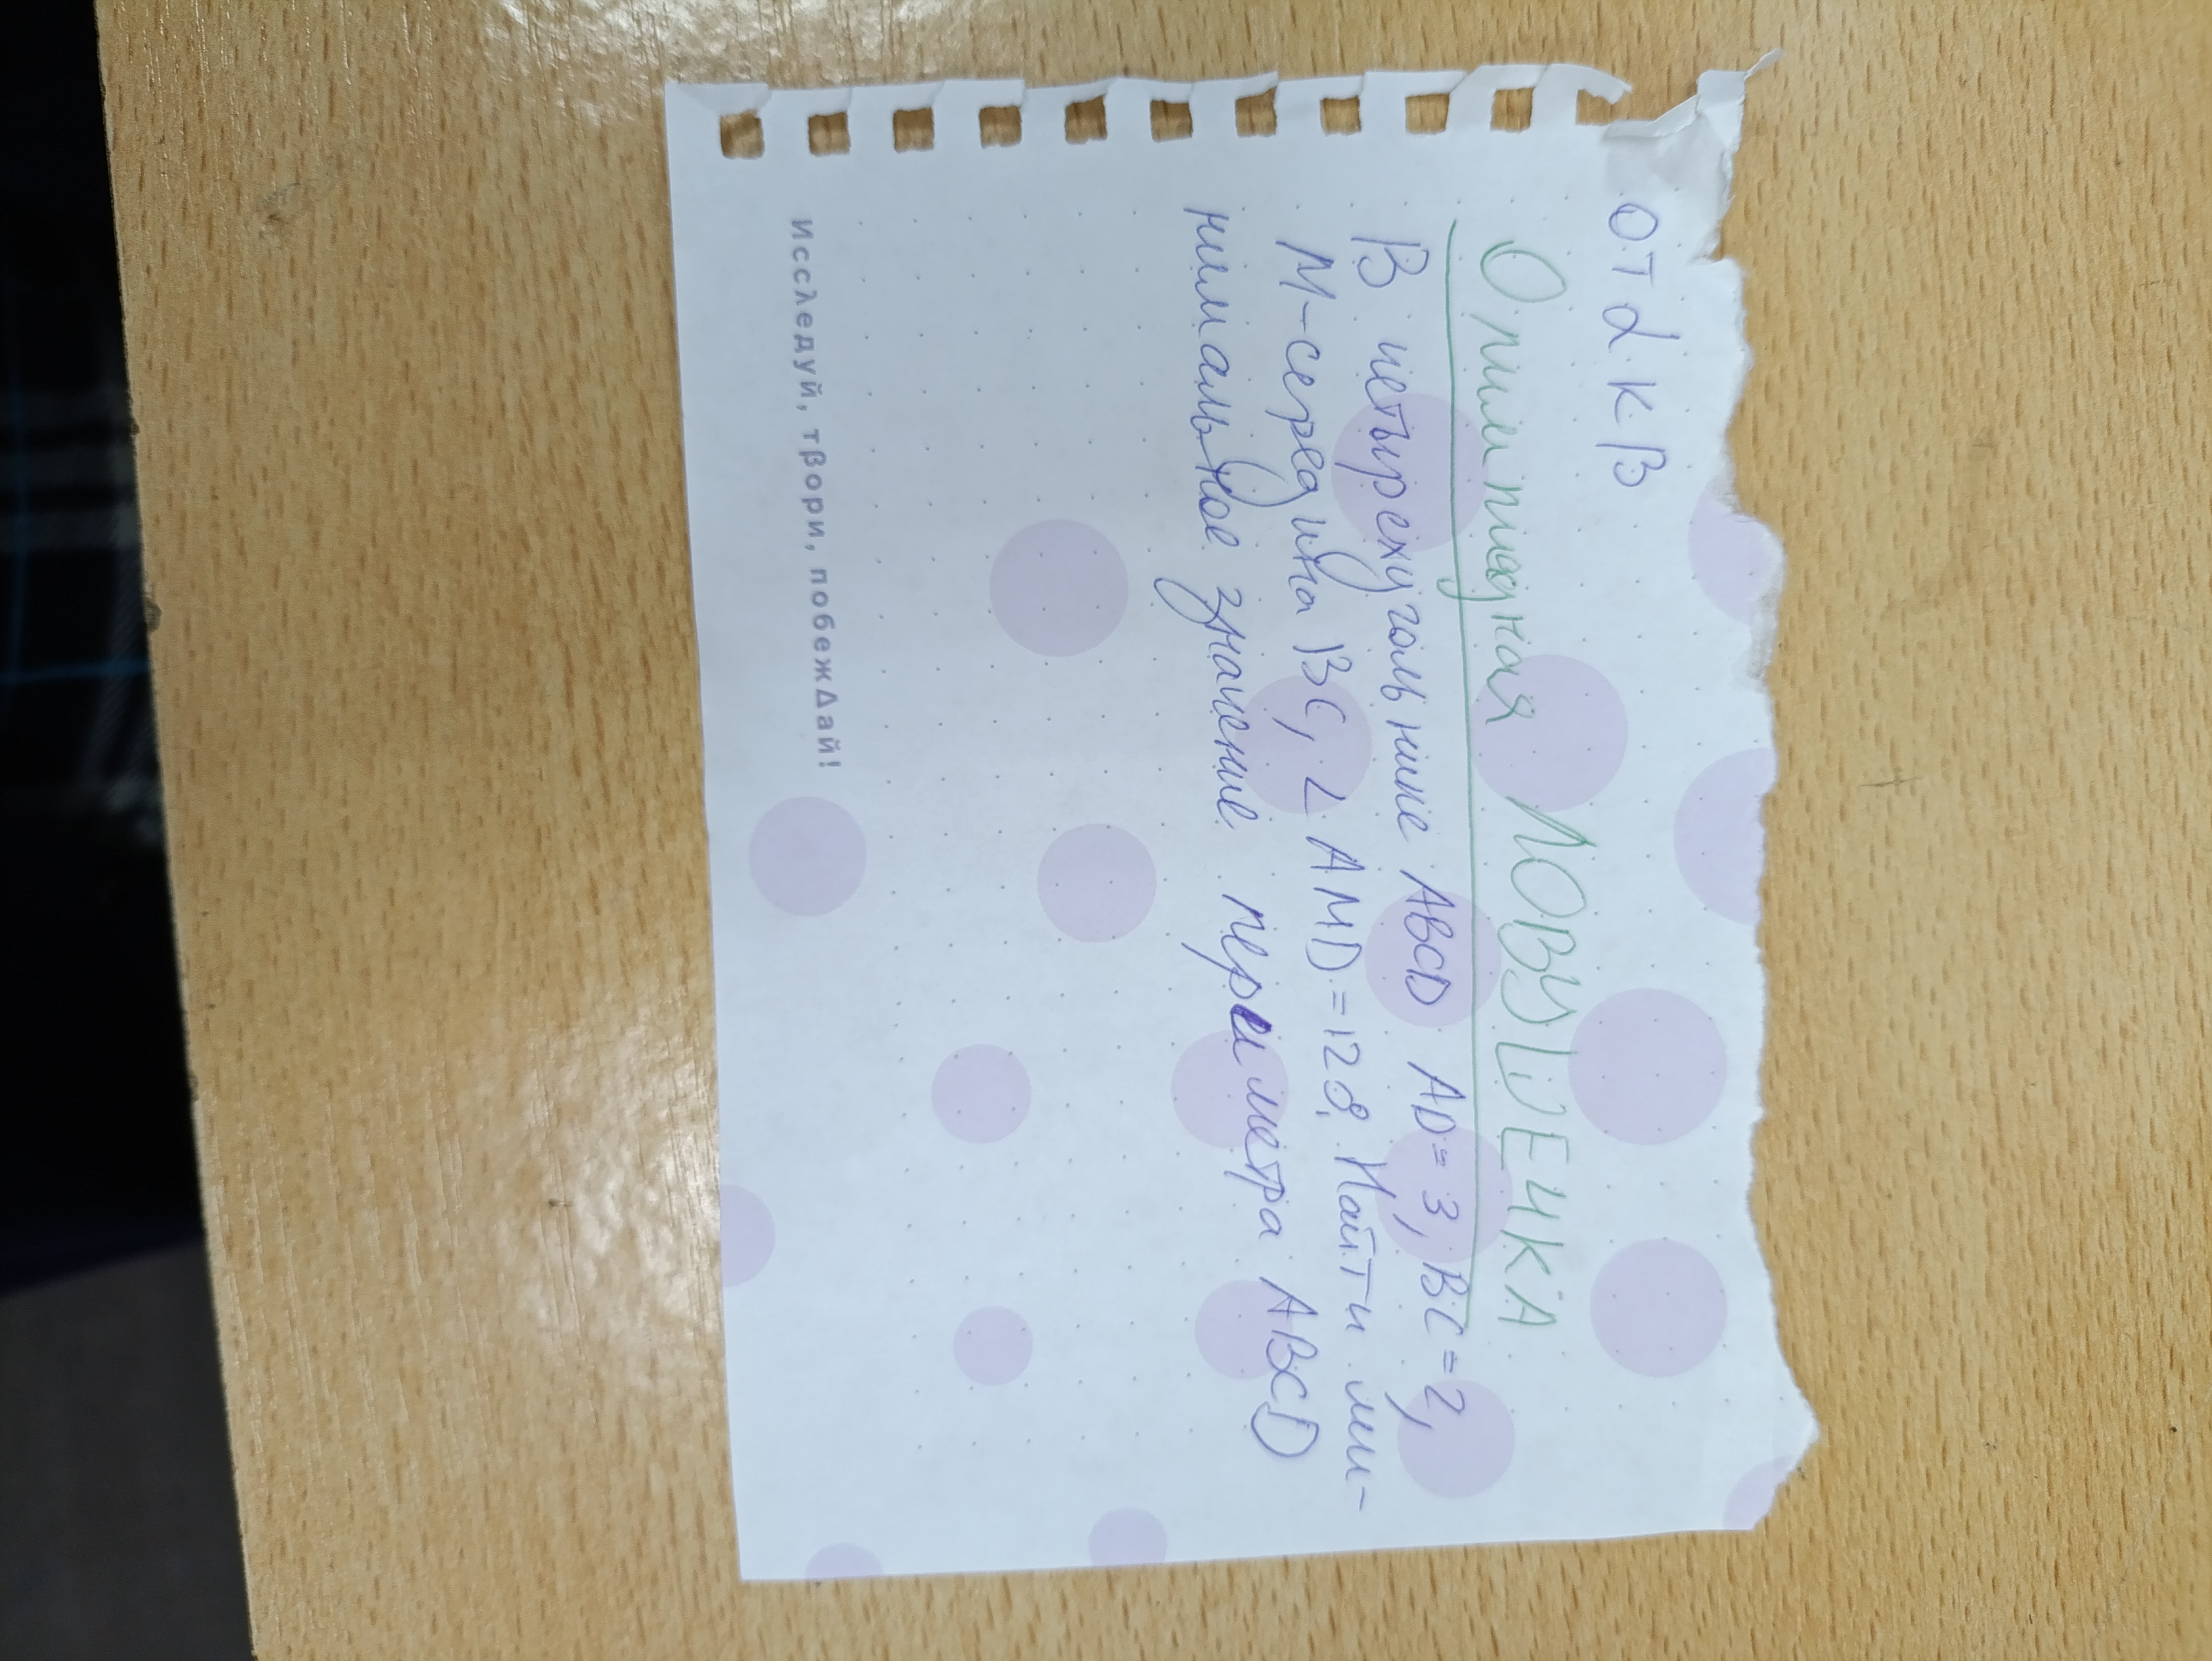 от α к β
Олимпиадная ЛОВУШЕЧКА
В четырехугольнике ABCD AD = 3, BC = 2,
M-середина BC, ∠ AMD = 120. Найти ми-
нимальное значение периметра ABCD
Исследуй, твори, побежΔай!